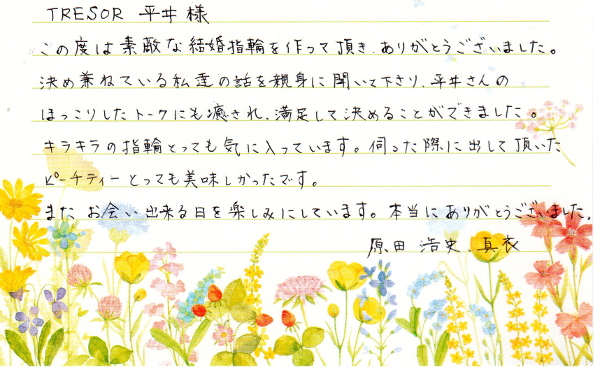 TRESOR 平井 様
この度は素敵な結婚指輪を作って頂き、ありがとうございました。
決め兼ねている私達の話を親身に聞いて下さり、平井さんの
ほっこりしたトークにも癒され、満足して決めることができました。
キラキラの指輪とっても気に入っています。伺った際に出して頂いた
ピーチティーとっても美味しかったです。
また お会い出来る日を楽しみにしています。本当にありがとうございました。
原田 浩史、真衣